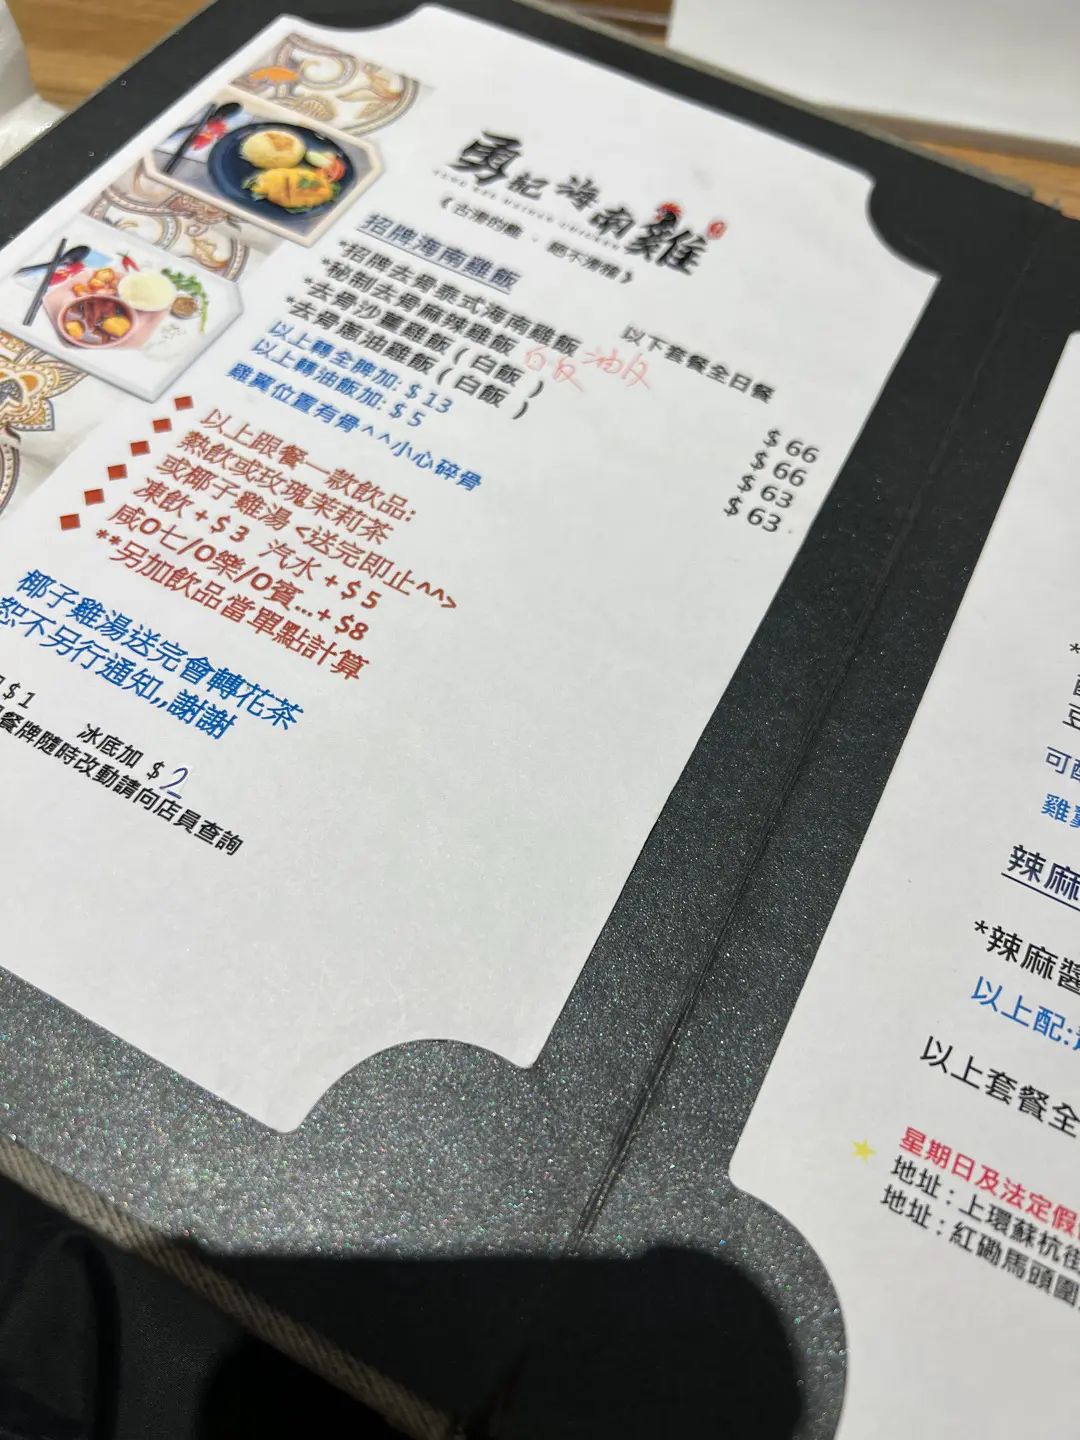 勇記海南雞
YUNG KEE HAINAN CHICKEN
招牌海南雞飯
以下套餐全日餐
*招牌去骨泰式海南雞飯 $ 66
*秘制去骨麻辣雞飯 $ 66
*去骨沙薑雞飯 ( 白飯 ) $ 63
*去骨蔥油雞飯 ( 白飯 ) $ 63
白反 油反
以上轉全髀加: $ 13
以上轉油飯加: $ 5
雞翼位置有骨^^小心碎骨
以上跟餐一款飲品:
熱飲或玫瑰茉莉茶
或椰子雞湯 <送完即止^^>
凍飲 + $ 3 汽水 + $ 5
咸0七/0樂/0賓...+ $8
**另加飲品當單點計算
椰子雞湯送完會轉花茶
恕不另行通知,,謝謝
$ 1 冰底加 $ 2
餐牌隨時改動請向店員查詢
豆
可配
雞翼
辣麻
*辣麻醬
以上配:
以上套餐全
星期日及法定假
地址 : 上環蘇杭街
地址 : 紅磡馬頭圍